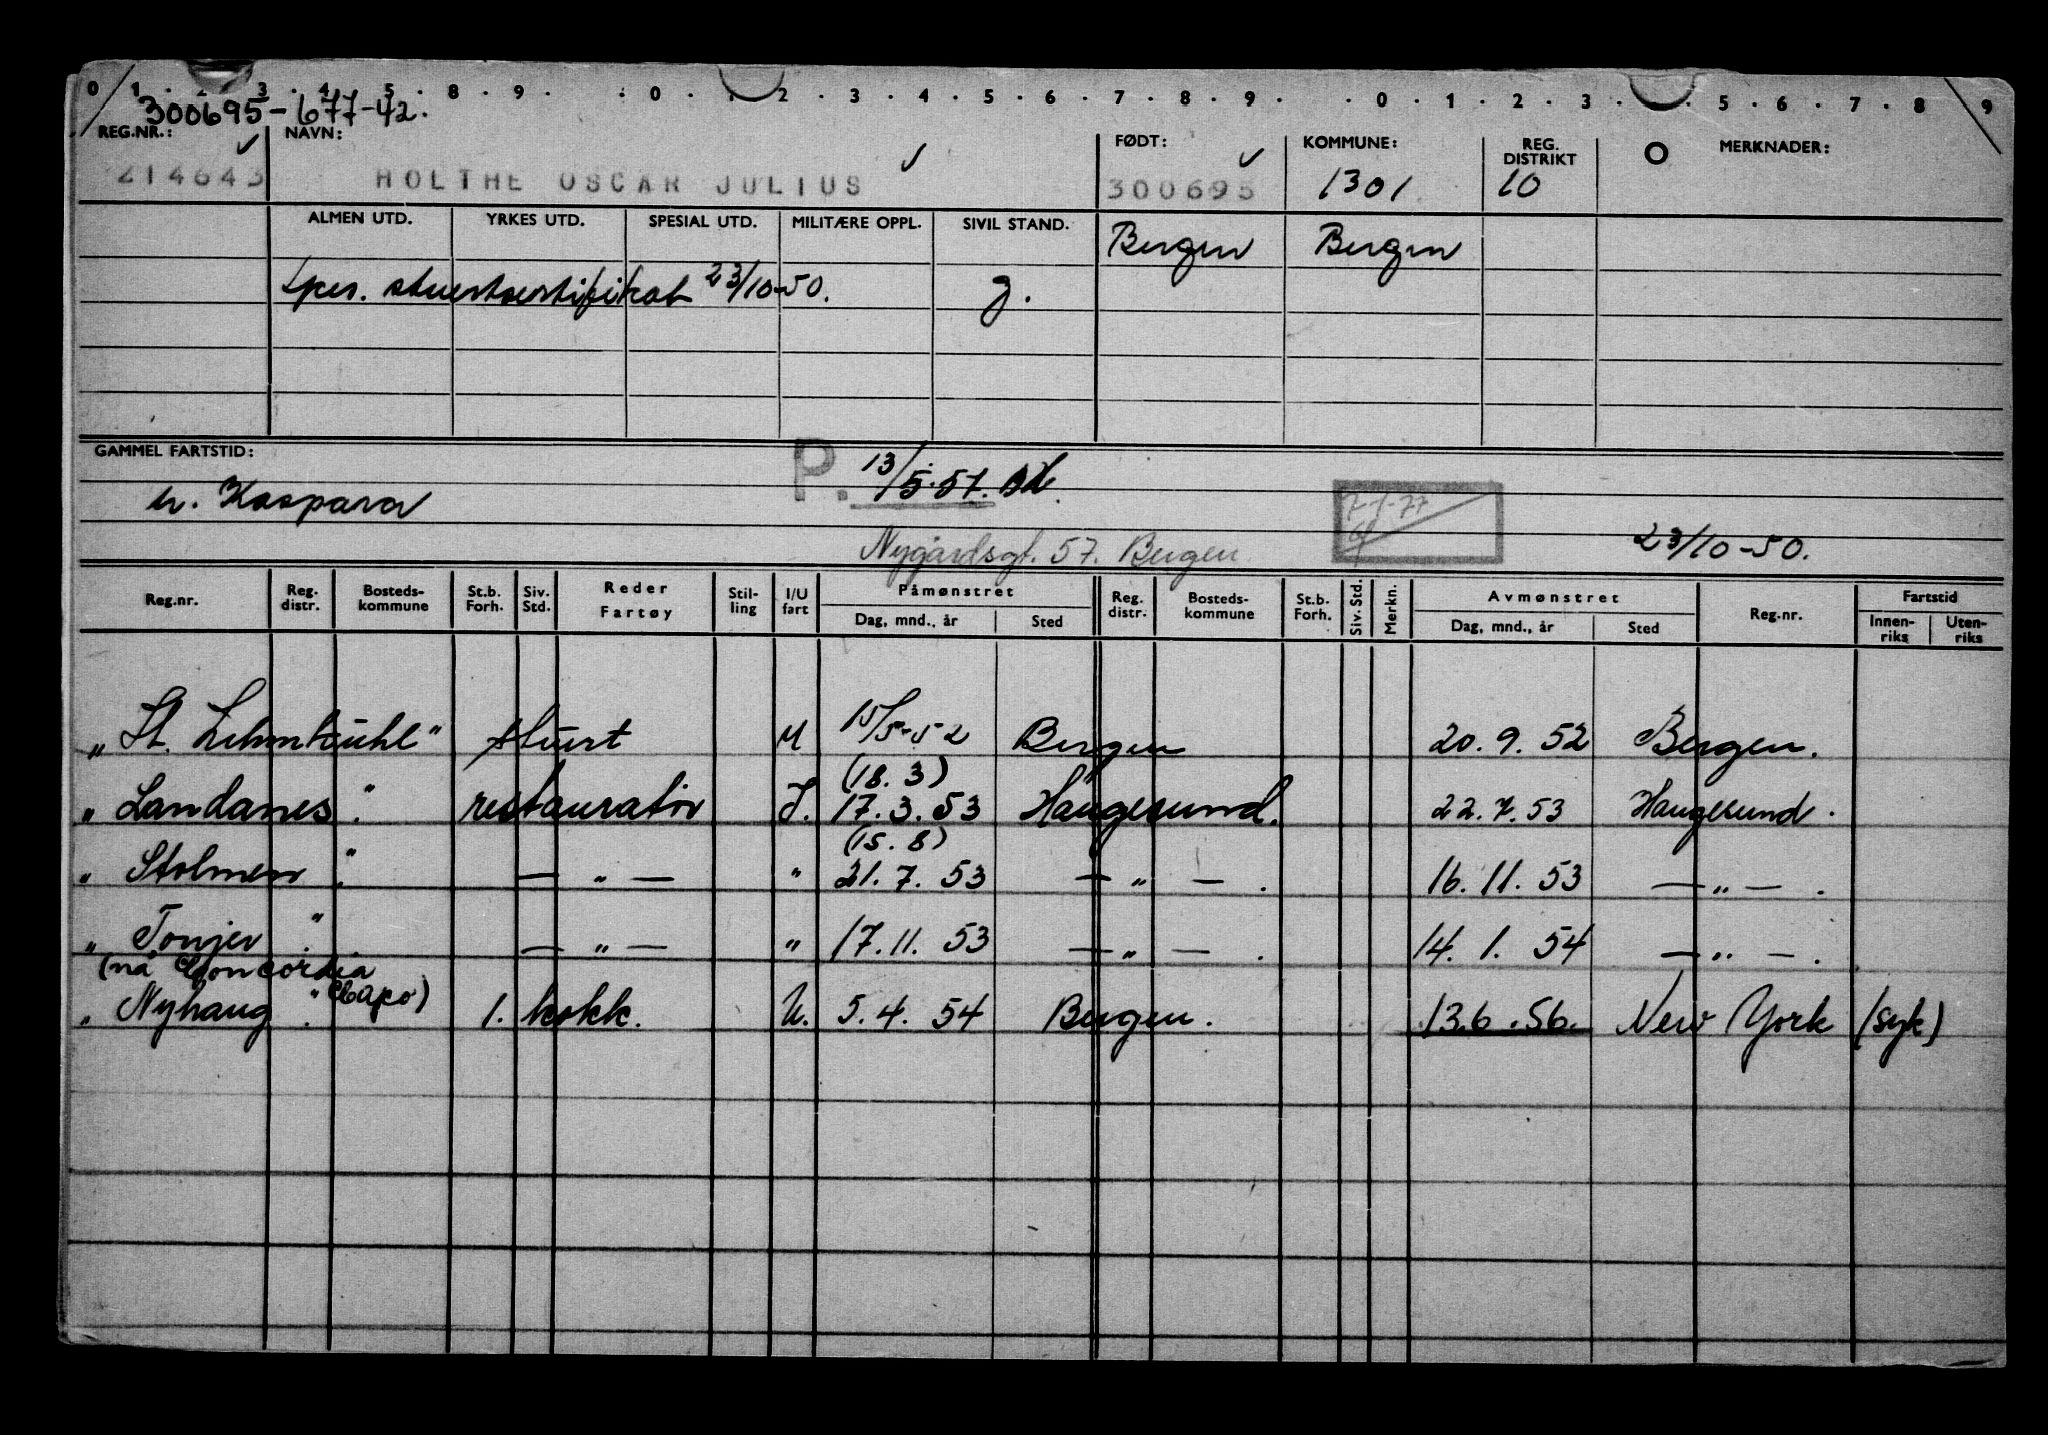 0 1 · 2 · 3 · 4 · 5 · 8 · 9 · · 0 · 1 · 2 · 3 · 4 · 5 · 6 · 7 · 8 · 9 · · 0 · 1 · 2 · 3 · · 5 · 6 · 7 · 8 9
300695-677-42.
REG.NR.: NAVN: FØDT: KOMMUNE: REG. DISTRIKT MERKNADER:
214643 HOLTHE OSCAR JULIUS 300695 1301 10
ALMEN UTD. YRKES UTD. SPESIAL UTD. MILITÆRE OPPL. SIVIL STAND. Bergen Bergen
spes. stuertsertifikat 23/10-50. g.
GAMMEL FARTSTID: P. 13/5.57.
n. Kaspara 7-1-77
Nygårdsgt. 57. Bergen 23/10-50.
Reg.nr. Reg. distr. Bosteds-kommune St.b. Forh. Siv. Std. Reder Fartøy Stil-ling I/U fart Påmønstret Dag, mnd., år Sted Reg. distr. Bosteds-kommune St.b. Forh. Siv. Std. Merkn. Avmønstret Dag, mnd., år Sted Reg.nr. Fartstid Innen-riks Uten-riks
"St. Lehmkuhl" stuert U 15/5-52 Bergen 20.9.52 Bergen.
(18.3)
"Landanes". restauratør I. 17.3.53 Haugesund. 22.7.53 Haugesund.
(15.8)
"Stolmen". — " — " 21.7.53 — " — . 16.11.53 — " — .
"Tonjer". — " — " 17.11.53 — " — . 14.1.54 — " — .
(nå Concordia
Capo)
"Nyhaug". 1. kokk. U. 5.4.54 Bergen. 13.6.56. New York (syk)